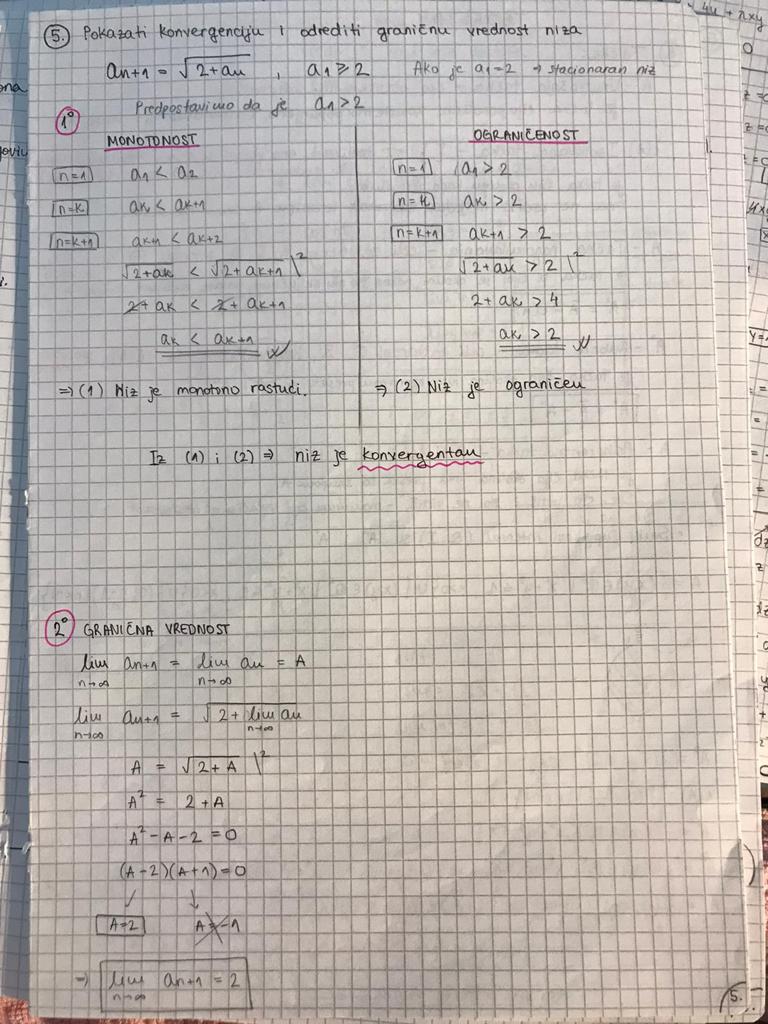 5. Pokazati konvergenciju i odrediti graničnu vrednost niza
an+1 = √2+an , a1 ≥ 2 Ako je a1=2 → stacionaran niz
1° Predpostavimo da je a1 > 2
MONOTONOST
n=1 a1 < a2
n=k ak < ak+1
n=k+1 ak+1 < ak+2
√2+ak < √2+ak+1 |²
2+ ak < 2+ ak+1
ak < ak+1
⇒ (1) Niz je monotono rastući.
OGRANIČENOST
n=1 a1 > 2
n=k ak > 2
n=k+1 ak+1 > 2
√2+ak > 2 |²
2+ ak > 4
ak > 2
⇒ (2) Niz je ograničen
Iz (1) i (2) ⇒ niz je konvergentan
2° GRANIČNA VREDNOST
lim an+1 = lim an = A
n→∞ n→∞
lim an+1 = √2 + lim an
n→∞ n→∞
A = √2+A |²
A² = 2 + A
A² - A - 2 = 0
(A-2)(A+1)=0
A=2 A=-1
⇒ lim an+1 = 2
n→∞
5.
4u + nxy